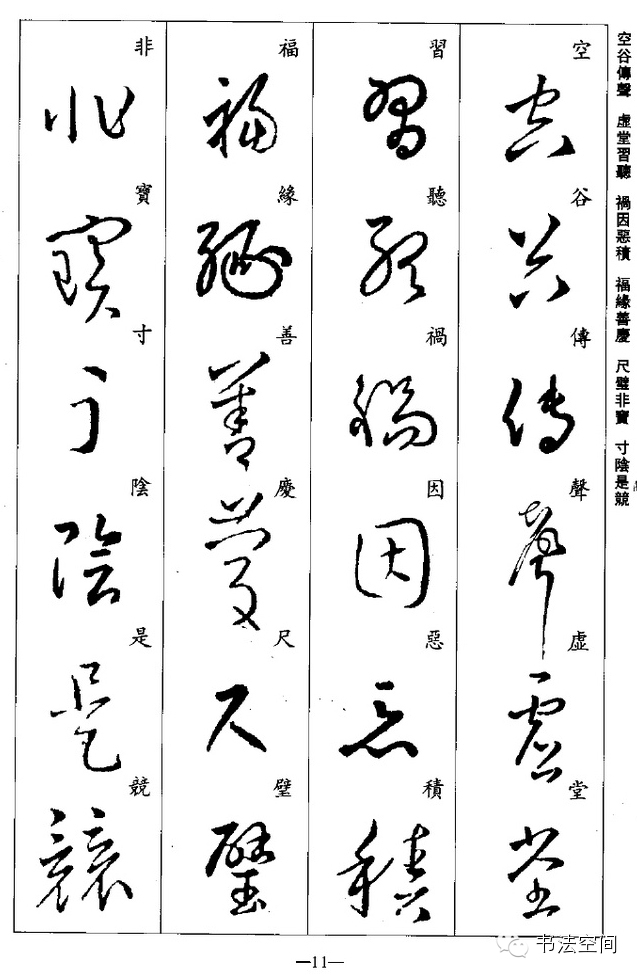 空谷傳聲　虛堂習聽　禍因惡積　福緣善慶　尺璧非寶　寸陰是競
空谷傳聲虛堂
習聽禍因惡積
福緣善慶尺璧
非寶寸陰是競
—11—
书法空间